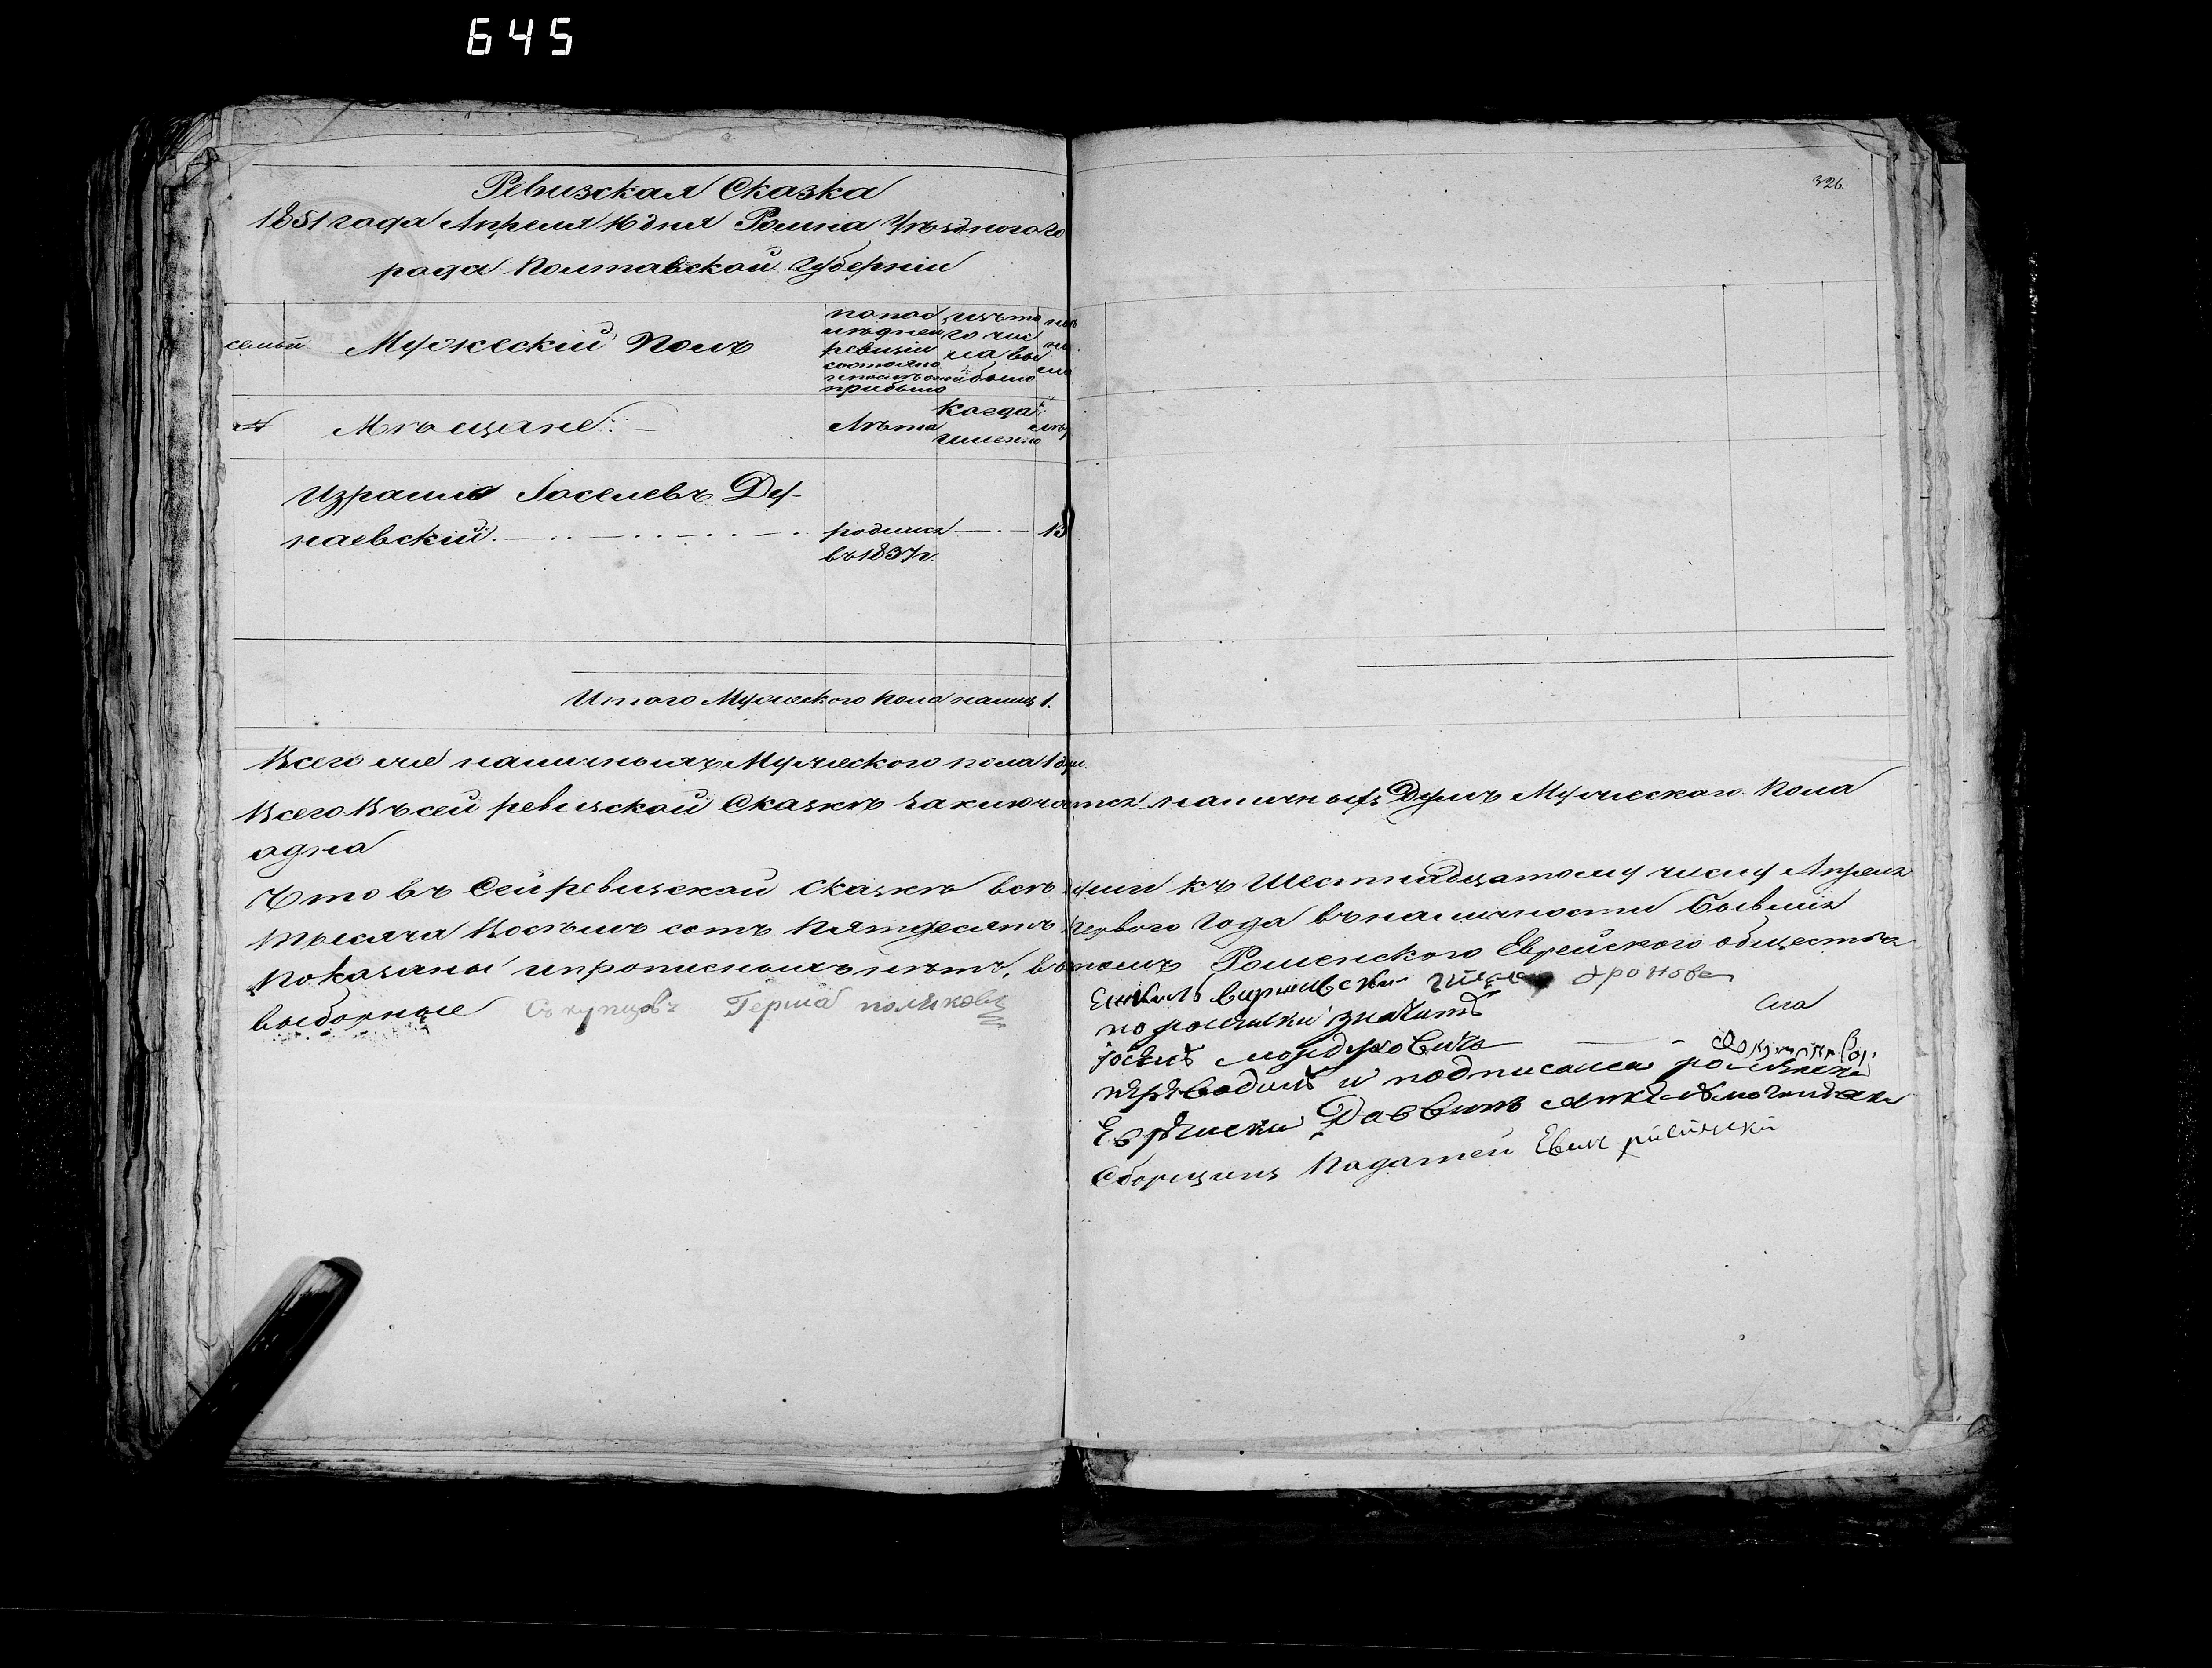 645
326.
Ревизская Сказка
1851 года Апреля 16 дня Ромна Уѣзднаго го
рода Полтавской Губерніи
семьи
Мужескій Полъ
по пос
лѣдней
ревизіи
состояло
и послѣ оной
прибыло
изъ то
го чис
ла вы
было
№
Мѣщане.
Лѣта
Когда
именно
Израиль Іоселевъ Ду-
наевскій.
родился
въ 1837 г.
13
Итого Мужескаго пола налицо 1.
Всего же наличныхъ Мужескаго пола 1 душ.
Всего Въ сей ревизской Сказкѣ заключается наличныхъ Душъ Мужескаго Пола
одна
Что въ Сей ревизской Сказкѣ всѣ души къ Шестнадцатому числу Апреля
тысяча Восемь сотъ Пятдесятъ Перваго Года въ наличности Бывшія
Показаны и прописныхъ нѣтъ, въ томъ Роменскаго Еврейскаго общества
выборные Съ купцовъ Герша поляковъ
по роспиский значитъ
мордуховичъ
переводилъ и подписалъ
Еврейски Даввинъ
Сборщикъ Податей